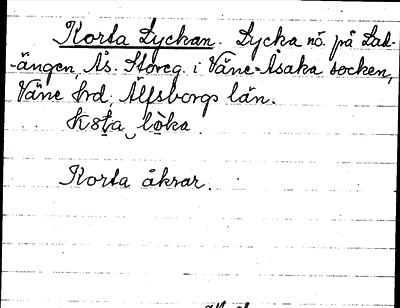 Korta Lyckan. Lycka nö. på Lad-
-ängen, Ås. Storeg. i Väne-Åsaka socken,
Väne hrd, Älfsborgs län.
Korta åkrar.